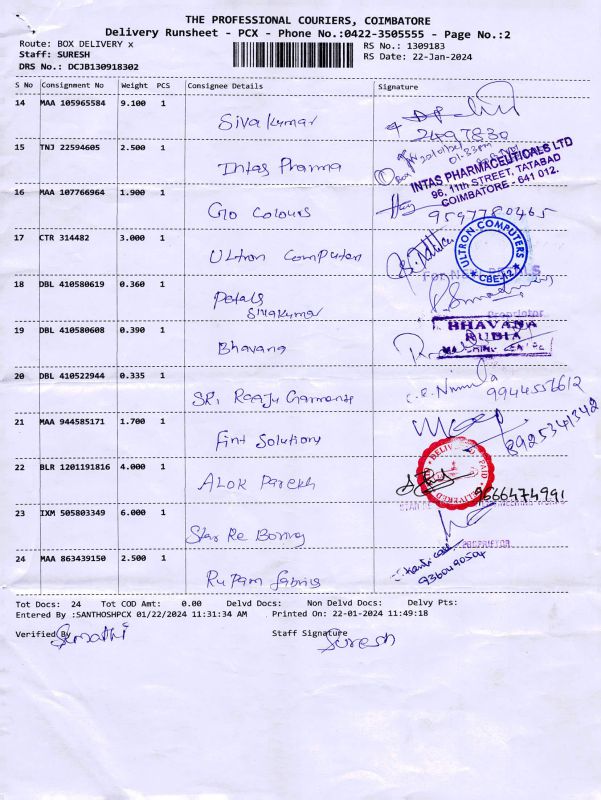 THE PROFESSIONAL COURIERS, COIMBATORE
Delivery Runsheet - PCX - Phone No.:0422-3505555 - Page No.:2
Route: BOX DELIVERY x
RS No.: 1309183
Staff: SURESH
RS Date: 22-Jan-2024
DRS No.: DCJB130918302
S No Consignment No Weight PCS Consignee Details Signature
14 MAA 105965584 9.100 1
Sivakumar
2497830
15 TNJ 22594605 2.500 1
Intas Pharma
01:33pm
INTAS PHARMACEUTICALS LTD
96, 11th STREET, TATABAD
COIMBATORE - 641 012.
16 MAA 107766964 1.900 1
Go Colours
9597780465
17 CTR 314482 3.000 1
Ultron Computers
ULTRON COMPUTERS
CBE-12
18 DBL 410580619 0.360 1
Petals
Sivakumar
Proprietor
19 DBL 410580608 0.390 1
Bhavana
BHAVANA
RUBIA
20 DBL 410522944 0.335 1
SRi Raaju Garments
9944556612
21 MAA 944585171 1.700 1
Fint Solutions
8925341342
22 BLR 1201191816 4.000 1
ALok Parekh
DELIVERED
PAID
9666474991
23 IXM 505803349 6.000 1
Star Re Boring
PROPRIETOR
24 MAA 863439150 2.500 1
Rupam fabrics
9360490504
Tot Docs: 24 Tot COD Amt: 0.00 Delvd Docs: Non Delvd Docs: Delvy Pts:
Entered By :SANTHOSHPCX 01/22/2024 11:31:34 AM Printed On: 22-01-2024 11:49:18
Verified By Sumathi
Staff Signature Suresh